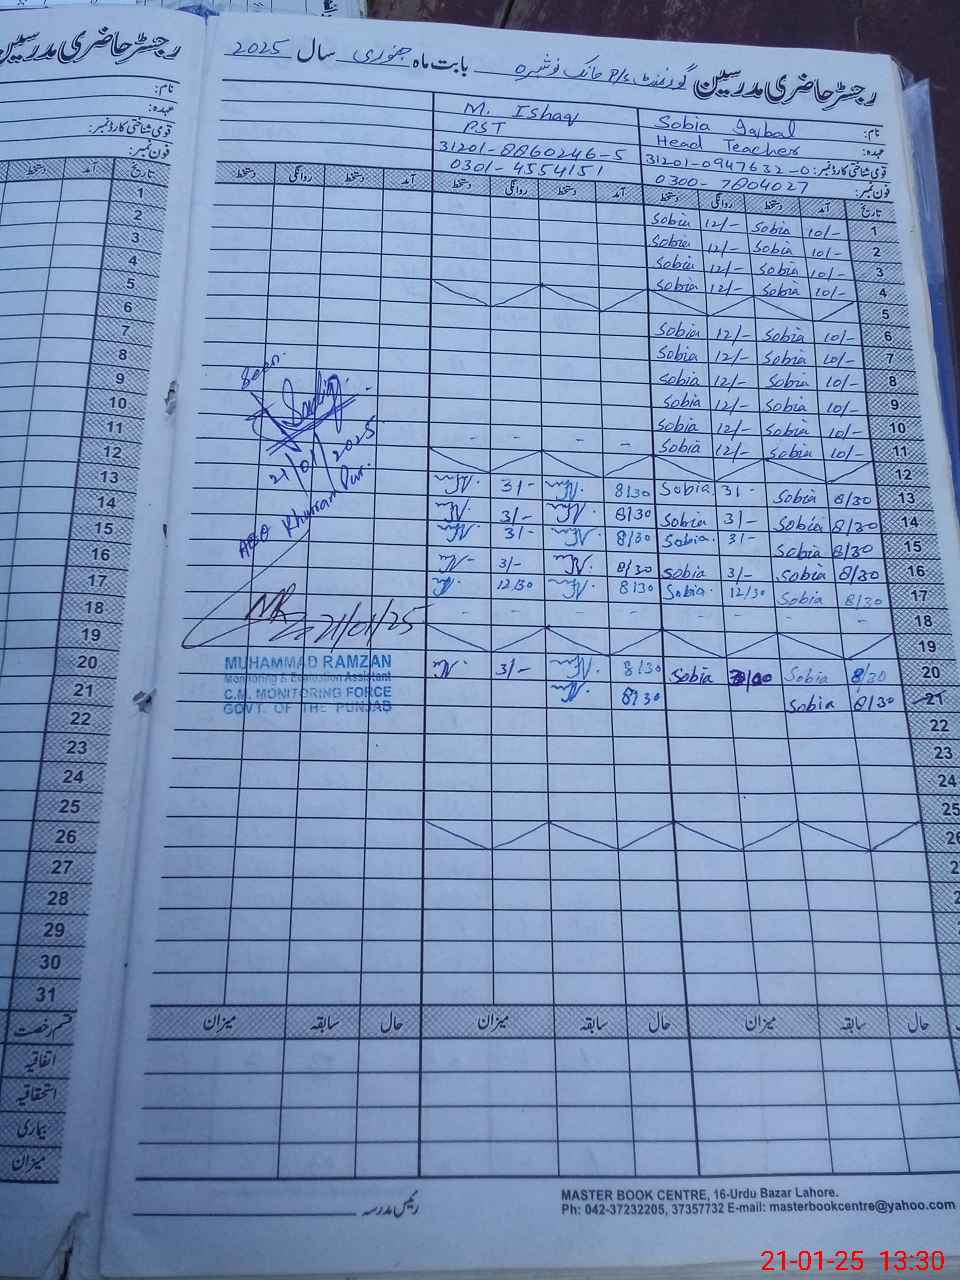 رجسٹر حاضری مدرسین گورنمنٹ P/S جانک نوشہرہ بابت ماہ جنوری سال 2025
نام: Sobia Iqbal M. Ishaq
عہدہ: Head Teacher PST
قومی شناختی کارڈ نمبر: 31201-0947632-0 31201-8860246-5
فون نمبر: 0300-7804027 0301-4554151
تاریخ آمد دستخط روانگی دستخط آمد دستخط روانگی دستخط آمد دستخط روانگی دستخط
1 10/- Sobia 12/- Sobia
2 10/- Sobia 12/- Sobia
3 10/- Sobia 12/- Sobia
4 10/- Sobia 12/- Sobia
5
6 10/- Sobia 12/- Sobia
7 10/- Sobia 12/- Sobia
8 10/- Sobia 12/- Sobia
9 10/- Sobia 12/- Sobia
10 10/- Sobia 12/- Sobia
11 10/- Sobia 12/- Sobia - - - -
12
13 8/30 Sobia 3/- Sobia 8/30 3/-
14 8/30 Sobia 3/- Sobia 8/30 3/-
15 8/30 Sobia 3/- Sobia 8/30 3/-
16 8/30 Sobia 3/- Sobia 8/30 3/-
17 8/30 Sobia 12/30 Sobia 8/30 12/30
18 - - - - - - - -
19
20 8/30 Sobia Sobia 8/30 3/-
21 8/30 Sobia 8/30
22
23
24
25
26
27
28
29
30
31
Seen.
21/01/2025
AEO Khurram Pur.
21/01/25
MUHAMMAD RAMZAN
Monitoring & Evaluation Assistant
C.M. MONITORING FORCE
GOVT. OF THE PUNJAB
حال سابقہ میزان حال سابقہ میزان حال سابقہ میزان
قسم رخصت
اتفاقیہ
استحقاقیہ
بیماری
میزان
رئیس مدرسہ
MASTER BOOK CENTRE, 16-Urdu Bazar Lahore.
Ph: 042-37232205, 37357732 E-mail: masterbookcentre@yahoo.com
رجسٹر حاضری مدرسین
نام:
عہدہ:
قومی شناختی کارڈ نمبر:
فون نمبر:
تاریخ آمد دستخط
21-01-25 13:30